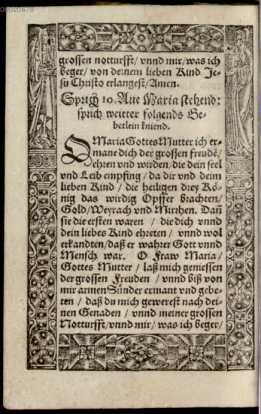 grossen notturfft/ vnnd mir/ was ich
beger/ von deinem lieben Kind Je-
su Christo erlangest/ Amen.
Spruch 10. Aue Maria stehend:
sprich weitter folgends Ge-
betlein kniend.
O Maria Gottes Mutter ich er-
mane dich der grossen freude/
ehren vnd wirden/ die dein seel
vnd Leib empfing/ da dir vnd deim
lieben Kind / die heiligen drey Kö-
nig das wirdig Opffer brachten/
Gold/ Weyrach vnd Mirrhen. Dañ
sie die ersten waren / die dich vnnd
dein liebes Kind ehreten/ vnnd wol
erkandten/ daß er wahrer Gott vnnd
Mensch war. O Fraw Maria/
Gottes Mutter / laß mich geniessen
der grossen Freuden / vnnd biß von
mir armen Sünder ermant vnd gebe-
ten / daß du mich gewerest nach dei-
nen Genaden/ vnnd meiner grossen
Notturfft/ vnnd mir/ was ich beger/